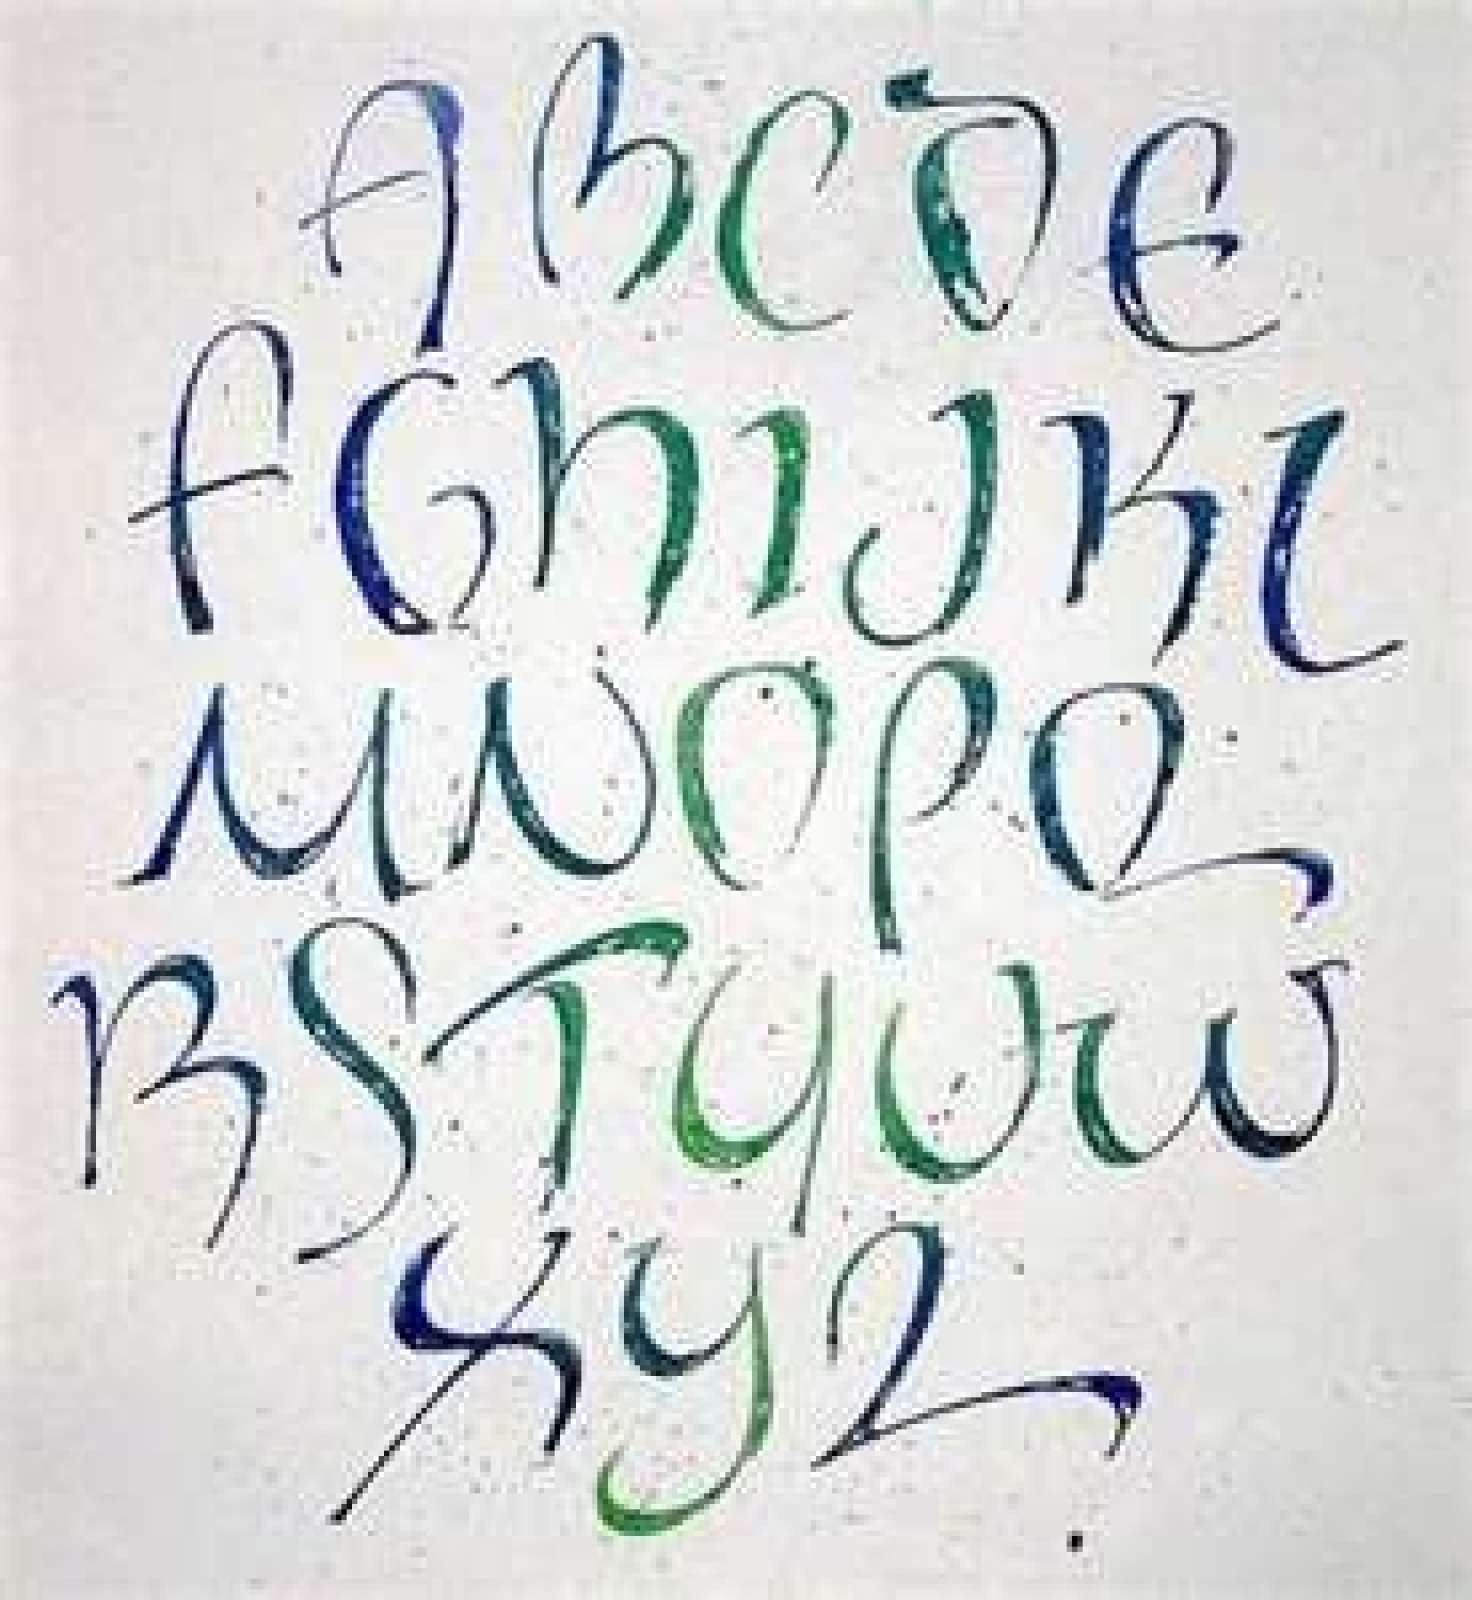 A B C D E
F G H I J K L
M N O P Q
R S T U V W
X Y Z